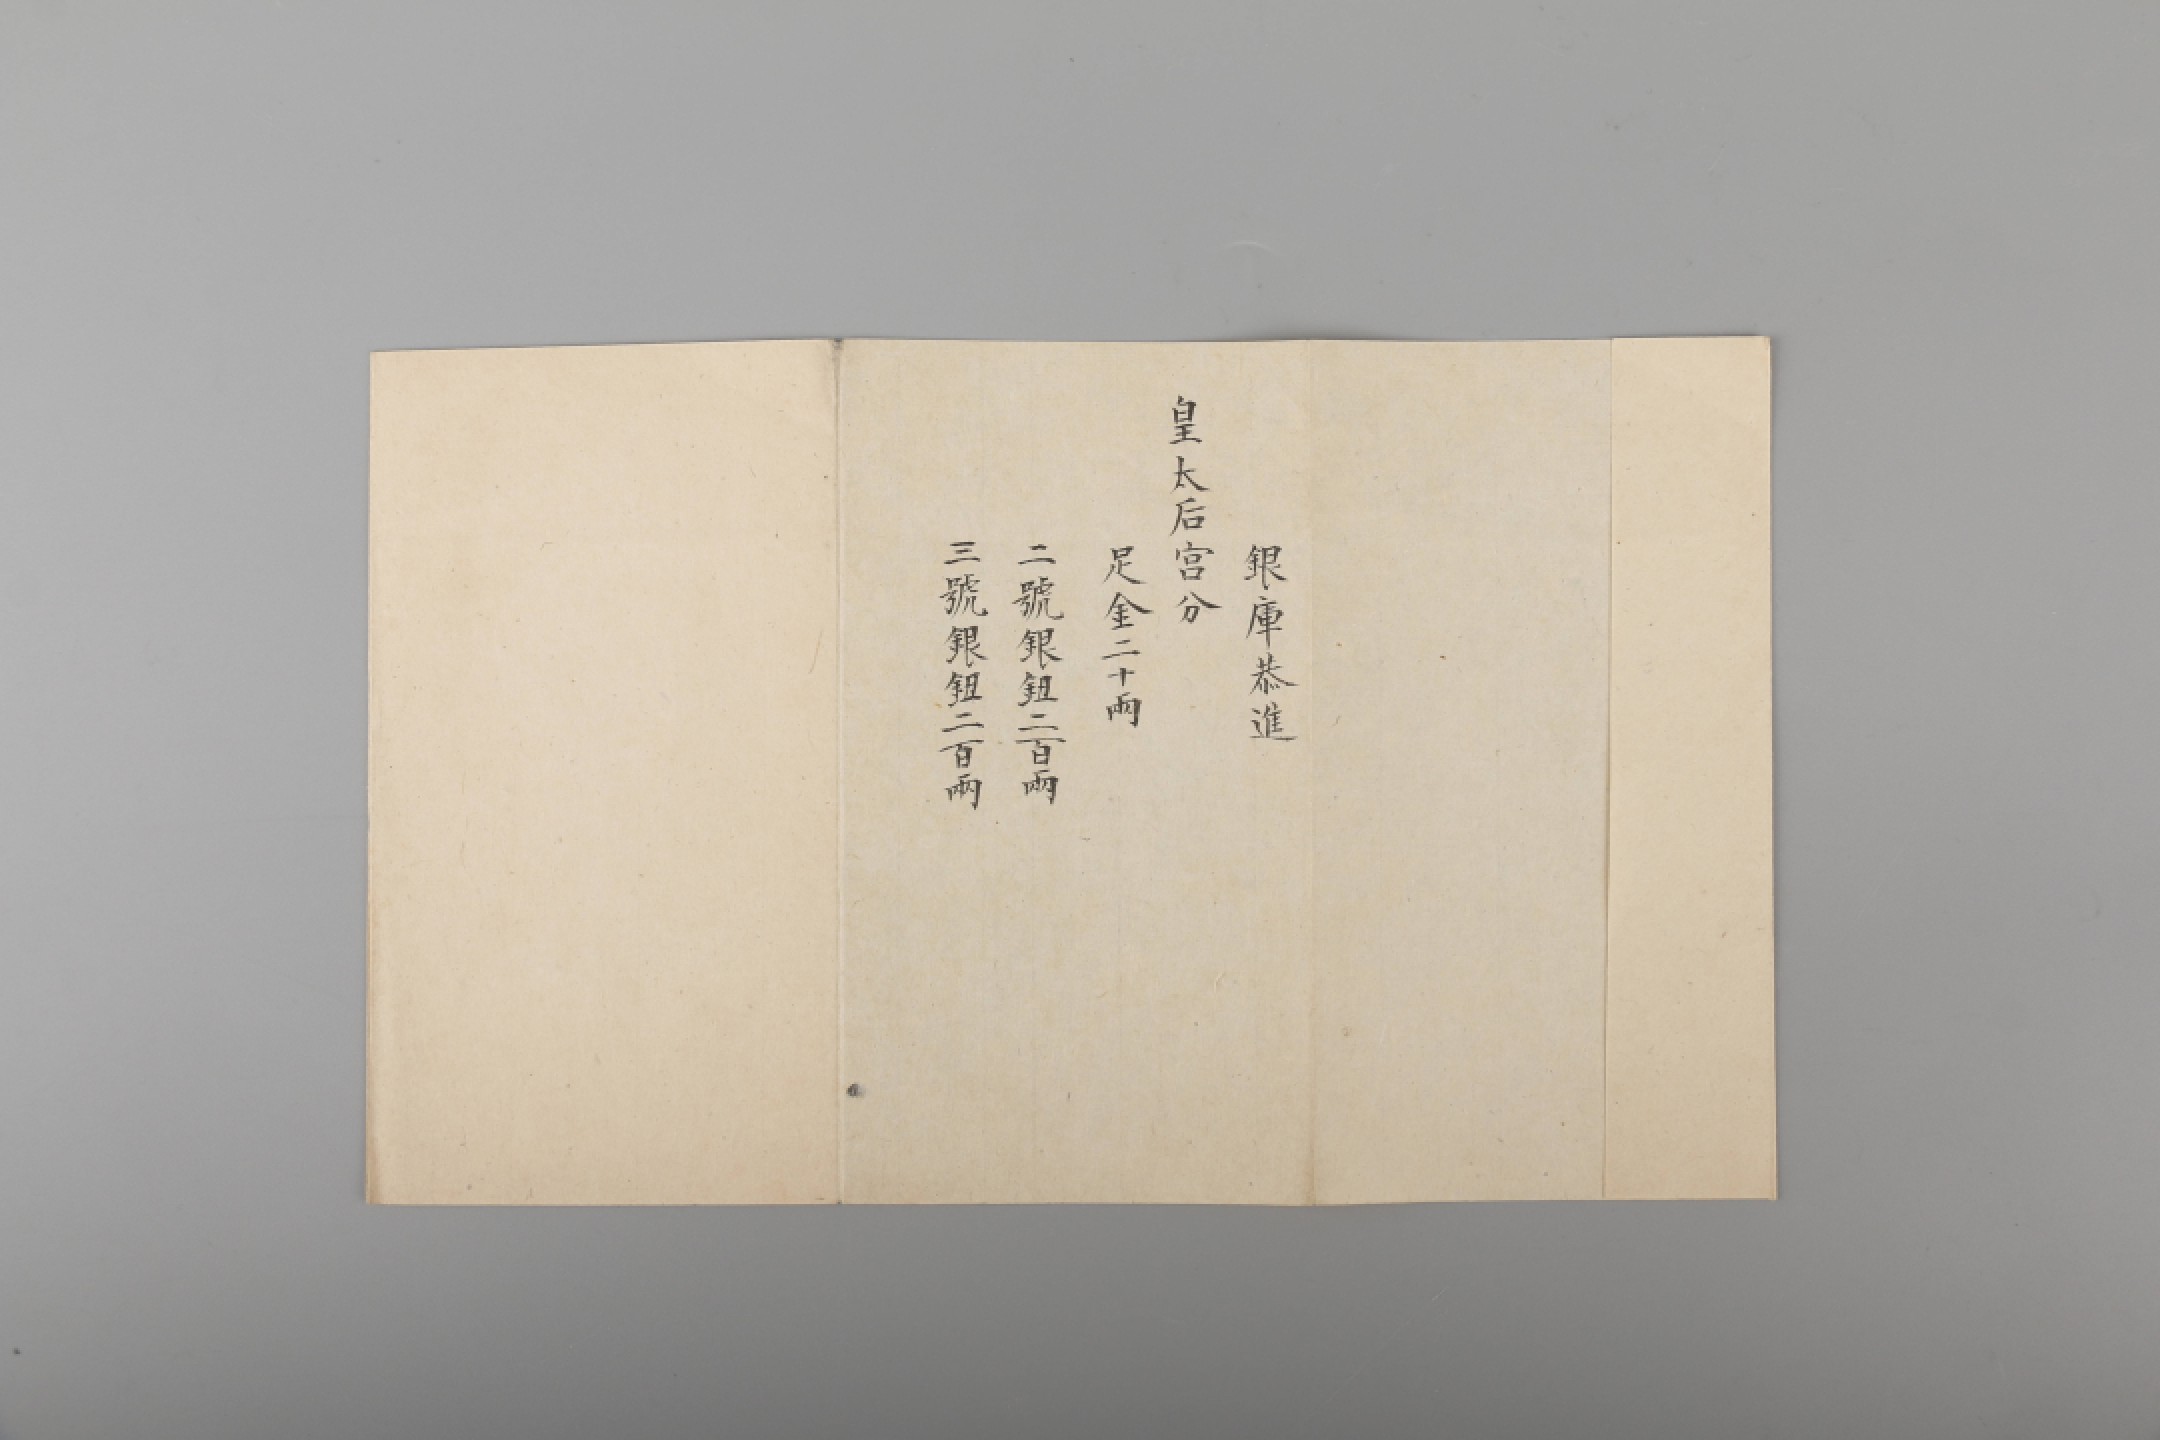 銀庫恭進
皇太后宮分
足金二十兩
二號銀鈕二百兩
三號銀鈕二百兩